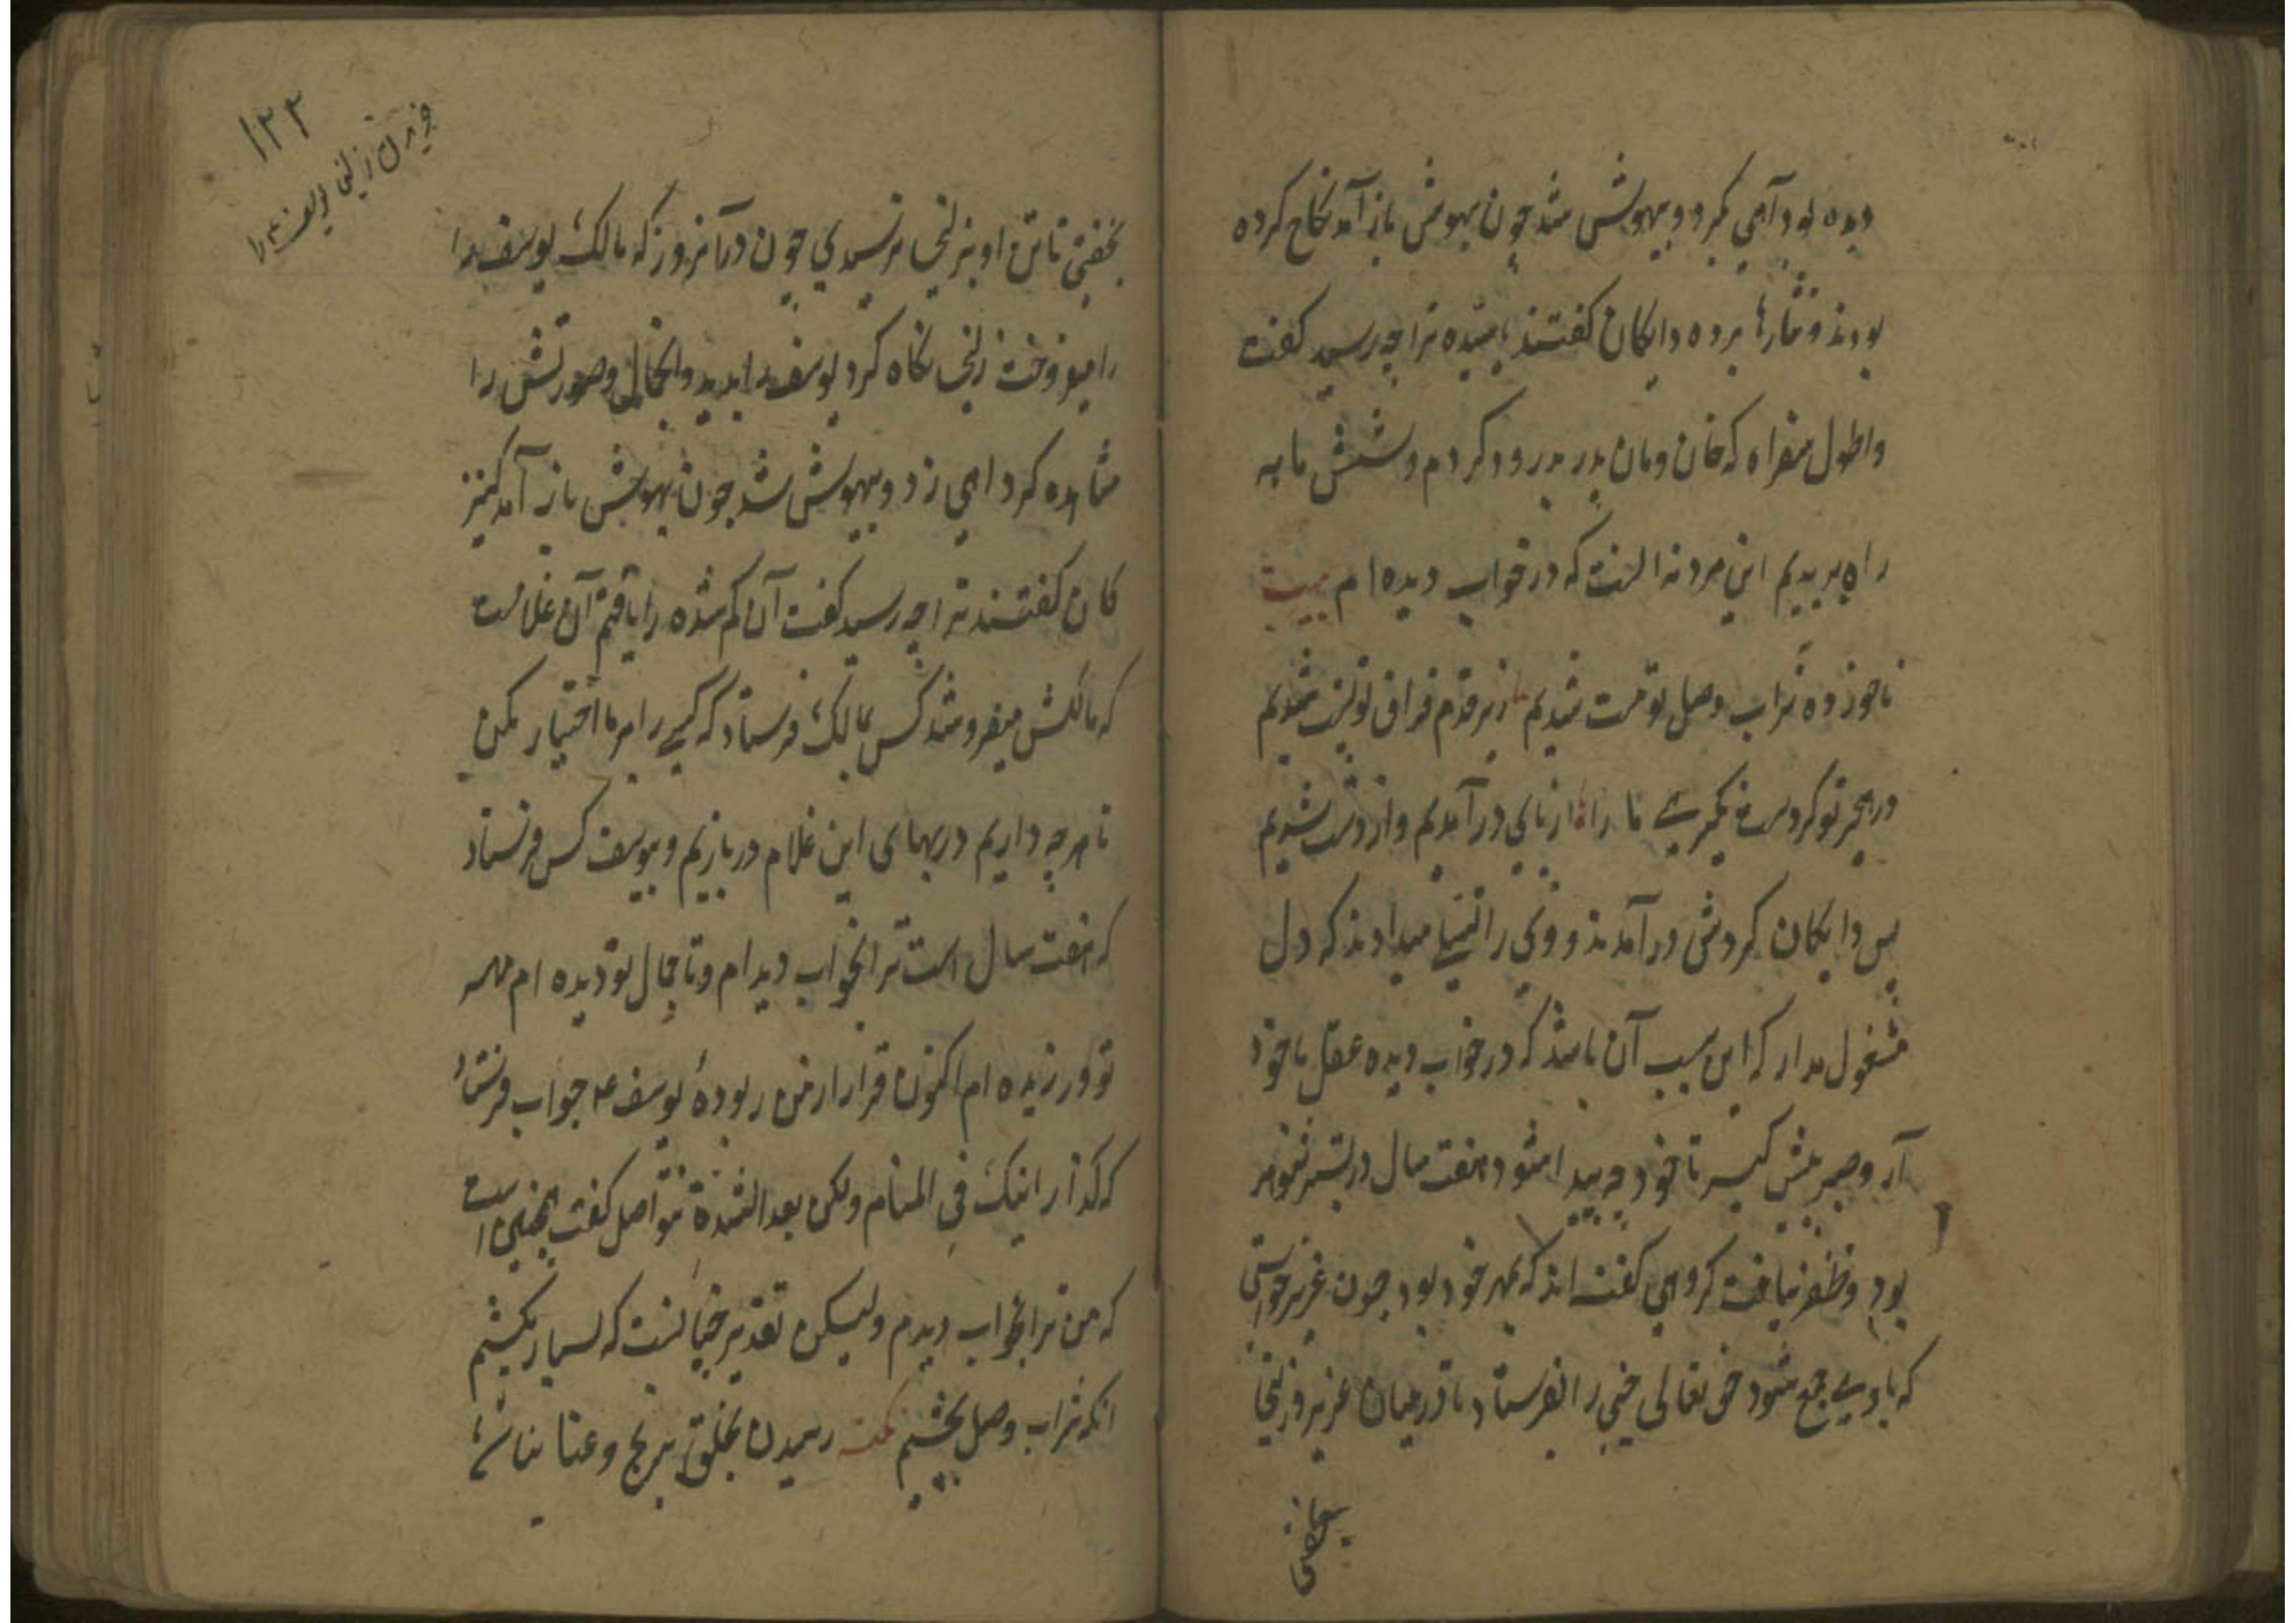 دیده بود آهی بکرد و بیهوش شد چون بهوش باز آمد نکاح کرده
بودند و نثارها برده دایکان کفتند یا سیده ترا چه رسید کفت
واطول سفراه که خان ومان پدر بدرود کردم و شش ماهه
راه بریدیم این مرد نه آنست که در خواب دیده ام بیت
ناخورده شراب وصل تو مست شدیم زیر قدم فراق تو پست شدیم
در هجر تو کردست نکیری ما را از پای در آمدیم و از دست شدیم
پس دایکان کردش در آمدند و وی را تسلی میدادند که دل
مشغول مدار که این سبب آن باشد که در خواب دیده عقل با خود
آر و صبر پیش کیر تا خود چه پیدا شود هفت سال در بستر شوهر
بود و ظفر نیافت کروهی کفته اند که بمهر خود بود چون عزیز خواستی
که با وی جمع شود حق تعالی جنی را بفرستاد تا درمیان عزیز و زلیخا
بخفتی
۱۲۲
خریدن زلیخا یوسف ع را
بخفتی تا تن او بزلیخا نرسیدی چون در آنروز که مالک یوسف را
را میفروخت زلیخا نکاه کرد یوسف را بدید و آنجمال و صورتش را
مشاهده کرد اهی زد و بیهوش شد چون بهوش باز آمد کنیز
کان کفتند ترا چه رسید کفت آن کم شده را یافتم آن غلامست
که مالکش میفروشد کس بمالک فرستاد که کسی را بر ما اختیار مکن
تا هرچه داریم در بهای این غلام دربازیم و بیوسف کس فرستاد
که هفت سال است ترا بخواب دیدام و تا جمال تو دیده ام مهر
تو ورزیده ام اکنون قرار از من ربودهٔ یوسف ع جواب فرستاد
که کذا رایتک فی المنام ولکن بعد الشدة نتواصل کفت همچنین است
که من ترا بخواب دیدم ولیکن تقدیر چنانست که بسیار بکشیم
آنکه شراب وصل بچشیم نکته رسیدن بخلق برنج و عنا